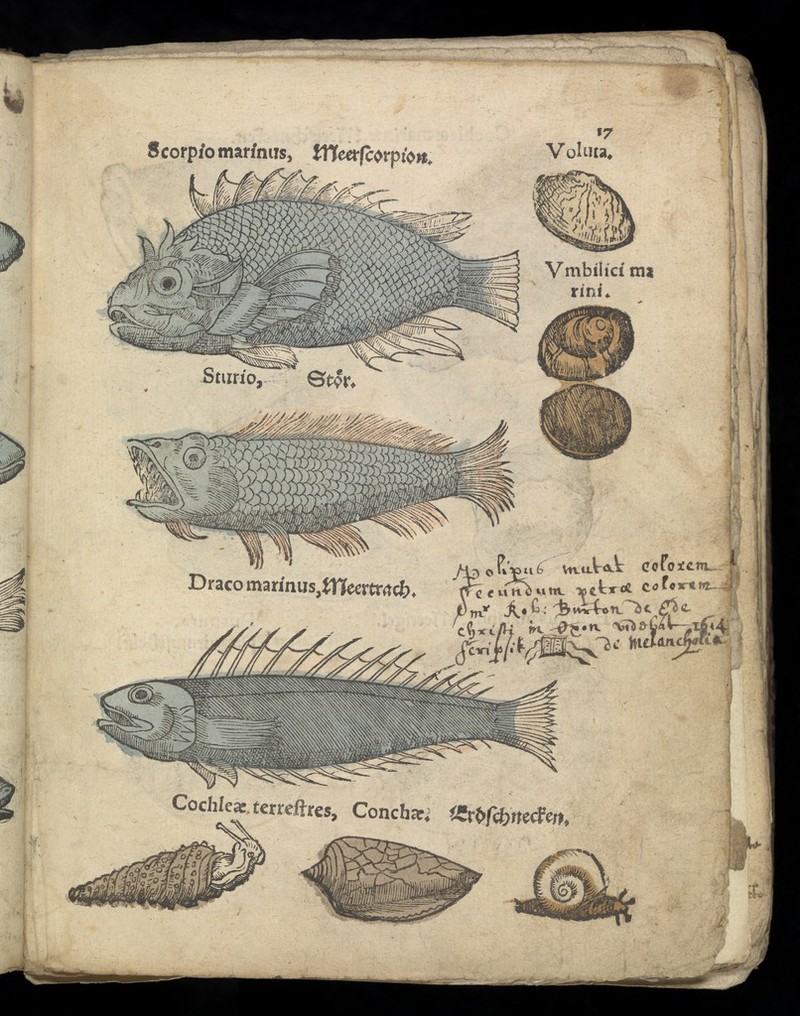 17
Scorpio marinus, Meerscorpion.
Voluta.
Vmbilici ma
rini.
Sturio, Stör.
Draco marinus, Meertrach.
Polipus mutat colorem
secundum petræ colorem
Dmr Rob: Burton de Æde
christi in Oxon videbat 1614
scripsit de Melancholia
Cochleæ terrestres, Conchæ. Erdschnecken.